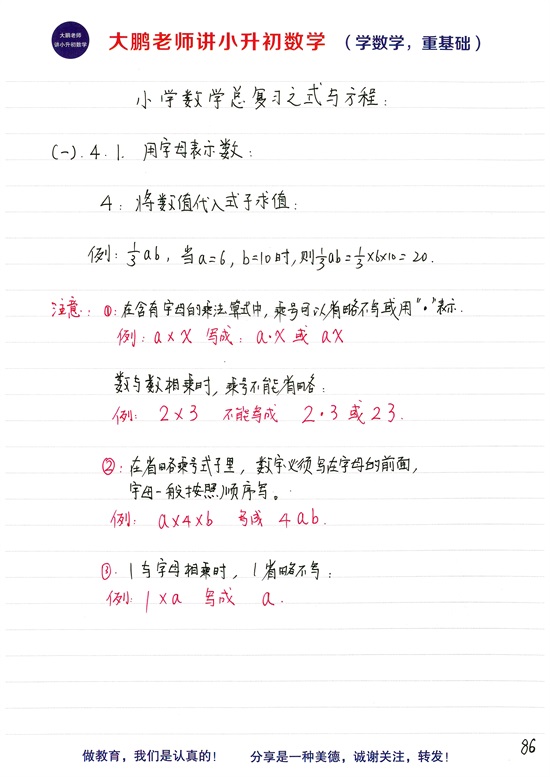 大鹏老师
讲小升初数学
大鹏老师讲小升初数学 (学数学,重基础)
小学数学总复习之式与方程:
(一).4.1. 用字母表示数:
4: 将数值代入式子求值:
例: 1/3 ab, 当a=6, b=10时,则1/3 ab=1/3×6×10=20.
注意: ①:在含有字母的乘法算式中,乘号可以省略不写或用"·"表示.
例: a×x 写成: a·x 或 ax
数与数相乘时, 乘号不能省略:
例: 2×3 不能写成 2·3或23.
②:在省略乘号式子里, 数字必须写在字母的前面,
字母一般按照顺序写。
例: a×4×b 写成 4ab.
③. 1与字母相乘时, 1省略不写:
例: 1×a 写成 a.
86
做教育,我们是认真的! 分享是一种美德,诚谢关注,转发!